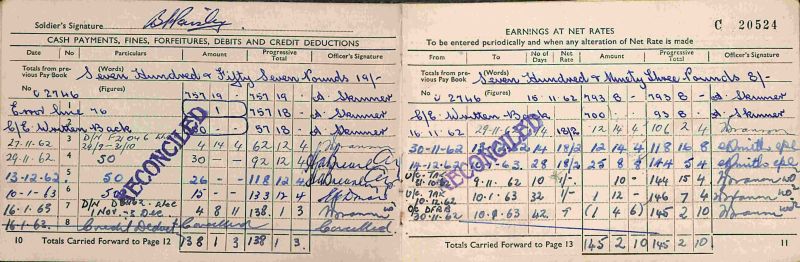 Soldier's Signature
CASH PAYMENTS, FINES, FORFEITURES, DEBITS AND CREDIT DEDUCTIONS
Date No Particulars Amount Progressive Total Officer's Signature
Totals from previous Pay Book (Words) Seven Hundred & Fifty Seven Pounds 19/-
No C 2746 (Figures) 757 19 - 757 19 - Skinner
Error line 76 1 - 757 18 - Skinner
C/E Written Back 700 - 57 18 - Skinner
27-11-62 3 4 14 4 62 12 4
29-11-62 4 50 30 - 92 12 4
13-12-62 5 50 26 - 118 12 4
10-1-63 6 50 15 - 133 12 4
16-1-63 7 1 Nov - 3 Dec 4 8 11 138 1 3
16-1-63 8 Credit Deduct Cancelled Cancelled
10 Totals Carried Forward to Page 12 138 1 3 138 1 3
RECONCILED
EARNINGS AT NET RATES C 20524
To be entered periodically and when any alteration of Net Rate is made
From To No of Days Net Rate Amount Progressive Total Officer's Signature
Totals from previous Pay Book (Words) Seven Hundred & Ninety Three Pounds 8/-
No C 2746 (Figures) 15-11-62 793 8 - 793 8 - Skinner
C/E Written Back 700 - 93 8 - Skinner
16-11-62 29-11-62 14 18/2 12 14 4 106 2 4
30-11-62 14 18/2 12 14 4 118 16 8
14-12-62 28 18/2 25 8 8 144 5 4
U/C TAX 31-10-62 9-11-62 10 10 - 144 15 4
U/C TAX 10-12-62 10-1-63 32 1 12 - 146 7 4
O/C DFRB 30-11-62 10-1-63 42 (1 4 6) 145 2 10
Totals Carried Forward to Page 13 145 2 10 145 2 10 11
RECONCILED